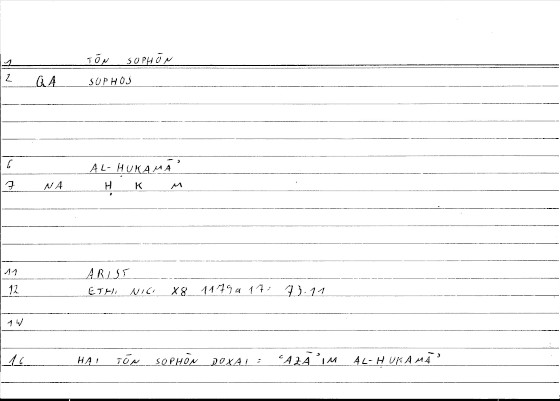 1 TŌN SOPHŌN
2 QA SOPHOS
6 AL-ḤUKAMĀʾ
7 NA Ḥ K M
11 ARIST
12 ETH. NIC. X8 1179a17: 73.11
14
16 HAI TŌN SOPHŌN DOXAI = ʿAẒĀʾIM AL-ḤUKAMĀʾ